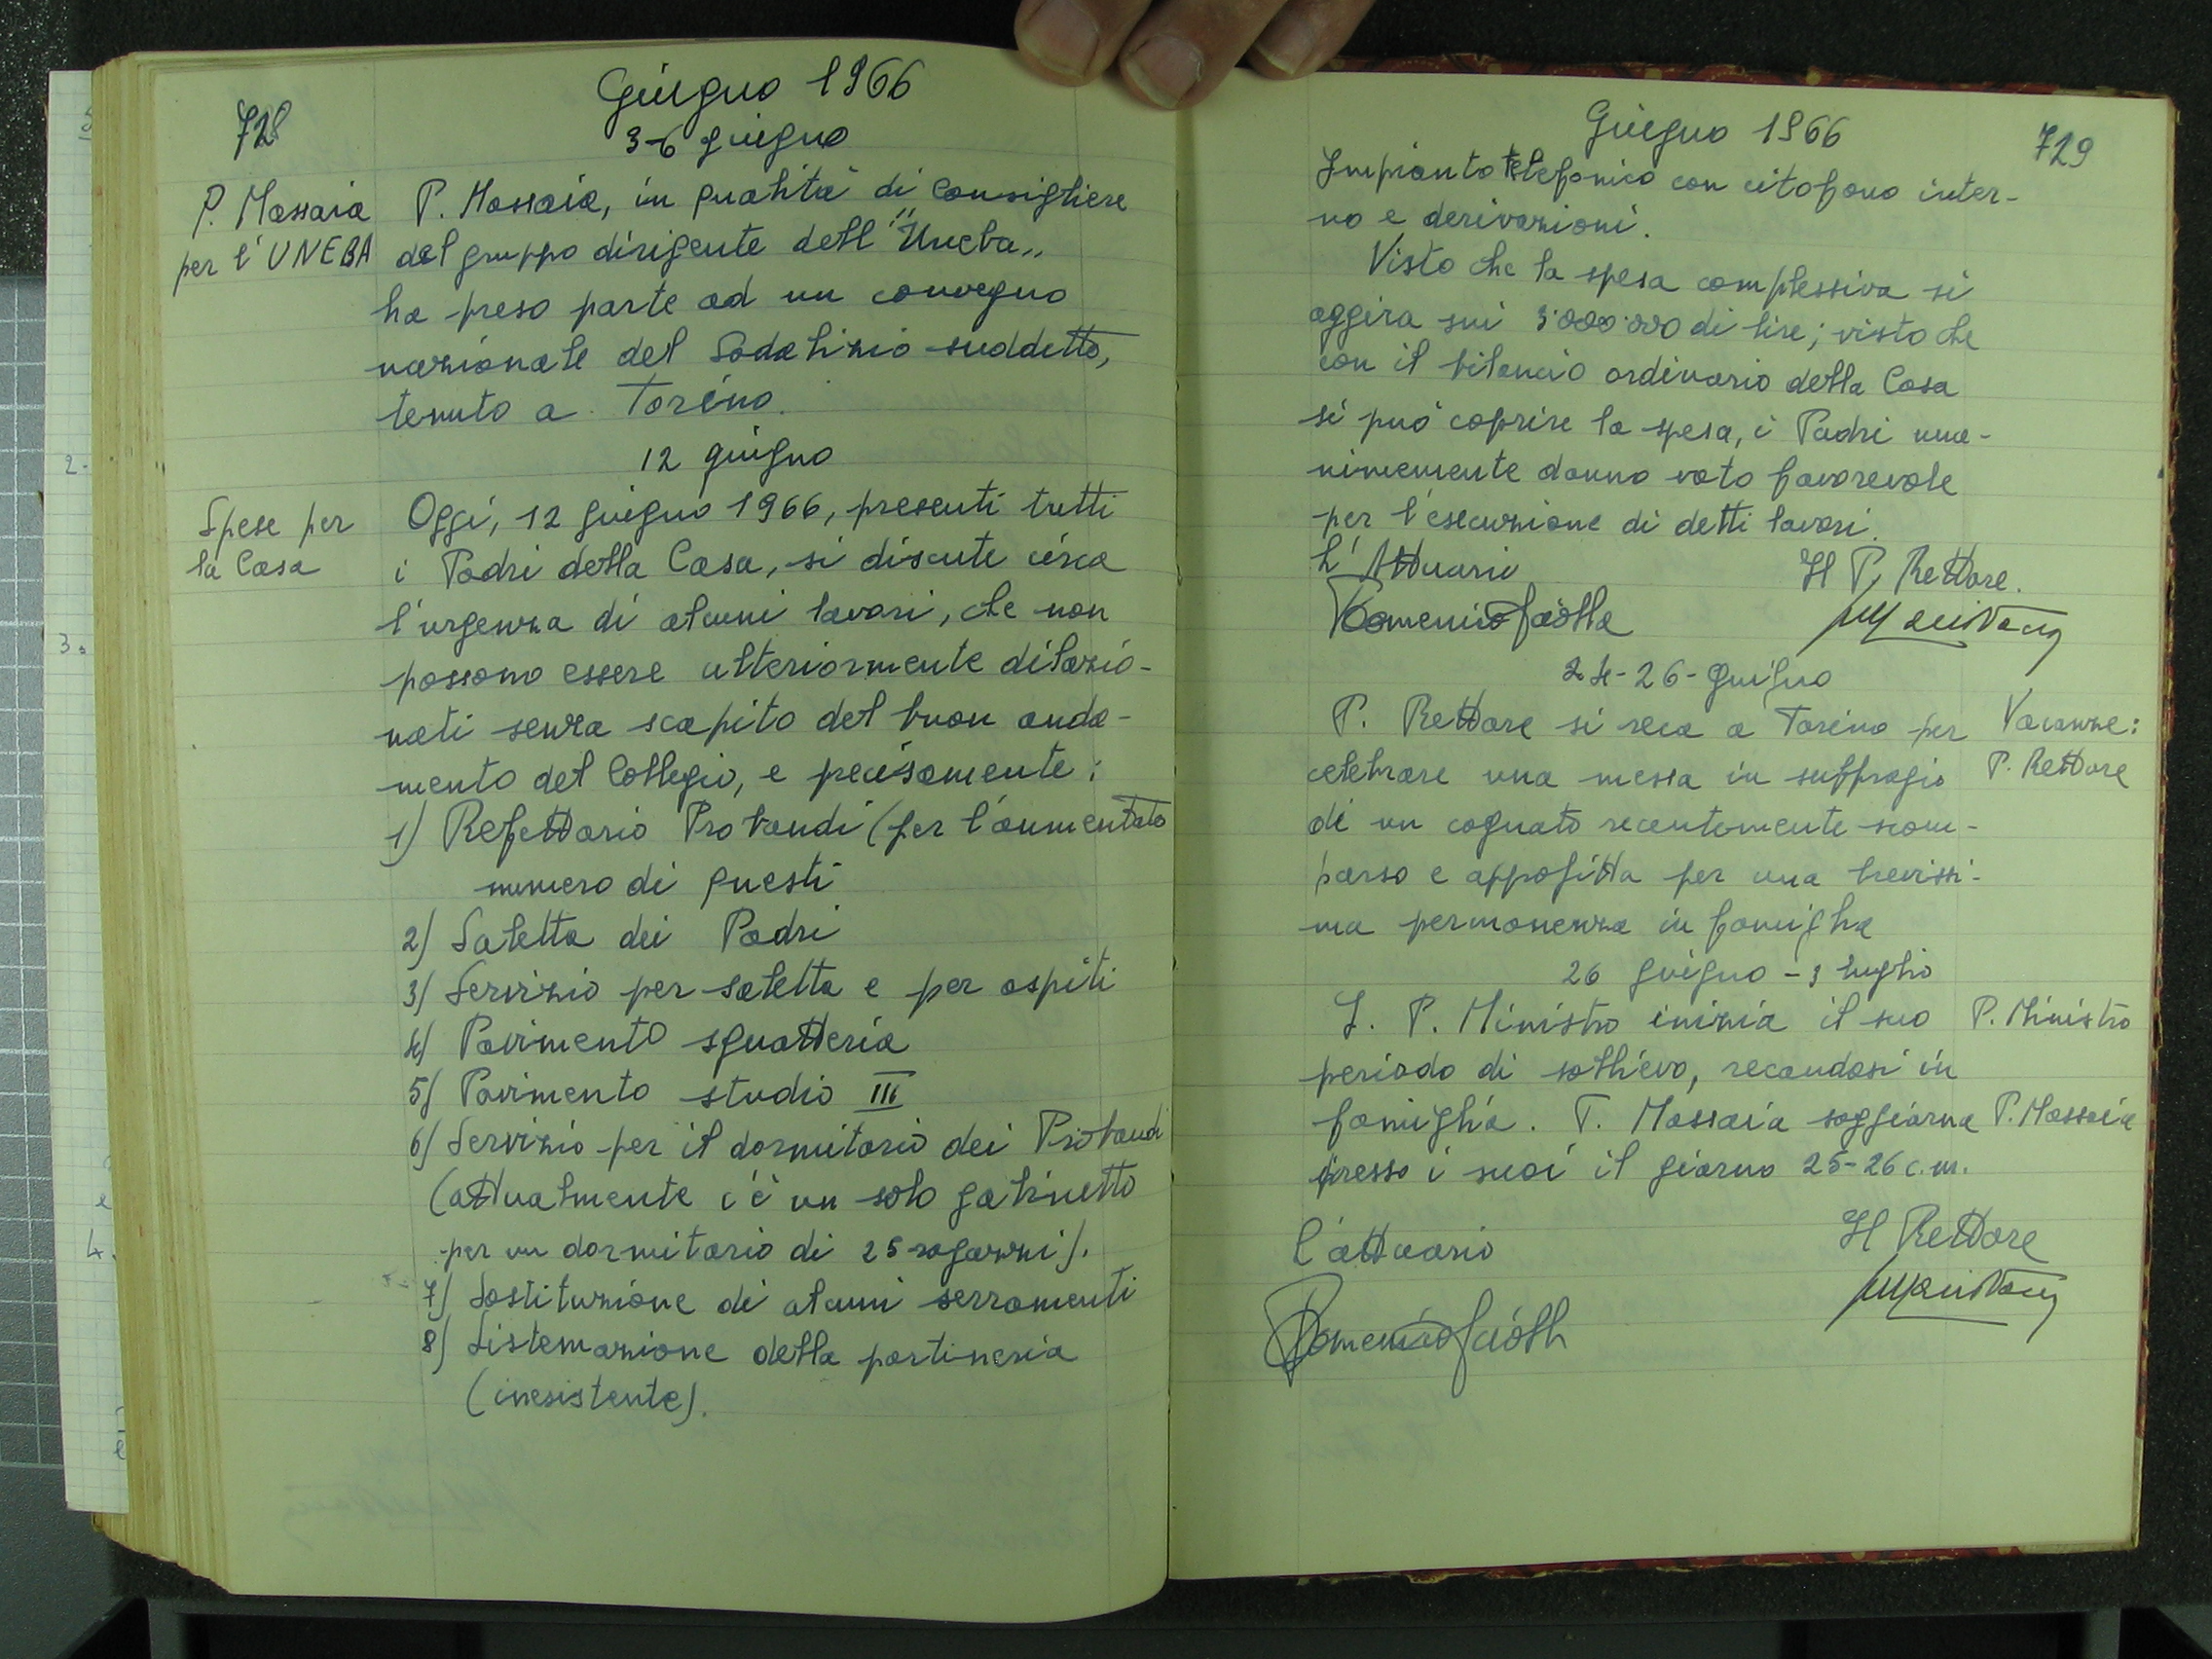 728
Giugno 1966
3-6 giugno
P. Massaia
per l'UNEBA
P. Massaia, in qualità di Consigliere
del gruppo dirigente dell'"Uneba"
ha preso parte ad un convegno
nazionale del Sodalizio suddetto,
tenuto a Torino.
12 giugno
Spese per
la Casa
Oggi, 12 giugno 1966, presenti tutti
i Padri della Casa, si discute circa
l'urgenza di alcuni lavori, che non
possono essere ulteriormente dilazio-
nati senza scapito del buon anda-
mento del Collegio, e precisamente:
1) Refettorio Probandi (per l'aumentato
numero di questi
2) Saletta dei Padri
3) Servizio per saletta e per ospiti
4) Pavimento sguatteria
5) Pavimento studio III
6) Servizio per il dormitorio dei Probandi
(attualmente c'è un solo gabinetto
per un dormitorio di 25 ragazzi).
7) Sostituzione di alcuni serramenti
8) Sistemazione della portineria
(inesistente).
Giugno 1966
729
Impianto telefonico con citofono inter-
no e derivazioni.
Visto che la spesa complessiva si
aggira sui 3.000.000 di lire; visto che
con il bilancio ordinario della Casa
si può coprire la spesa, i Padri una-
nimemente danno voto favorevole
per l'esecuzione di detti lavori.
L'Attuario
Il P. Rettore.
Domenico
24-26-giugno
P. Rettore si reca a Torino per
Vacanze:
celebrare una messa in suffragio
P. Rettore
di un cognato recentemente scom-
parso e approfitta per una brevissi-
ma permanenza in famiglia
26 giugno - 3 luglio
I. P. Ministro inizia il suo
P. Ministro
periodo di sollievo, recandosi in
famiglia. P. Massaia soggiorna
P. Massaia
presso i suoi il giorno 25-26 c.m.
l'attuario
Il Rettore
Domenico
2.
3.
4.